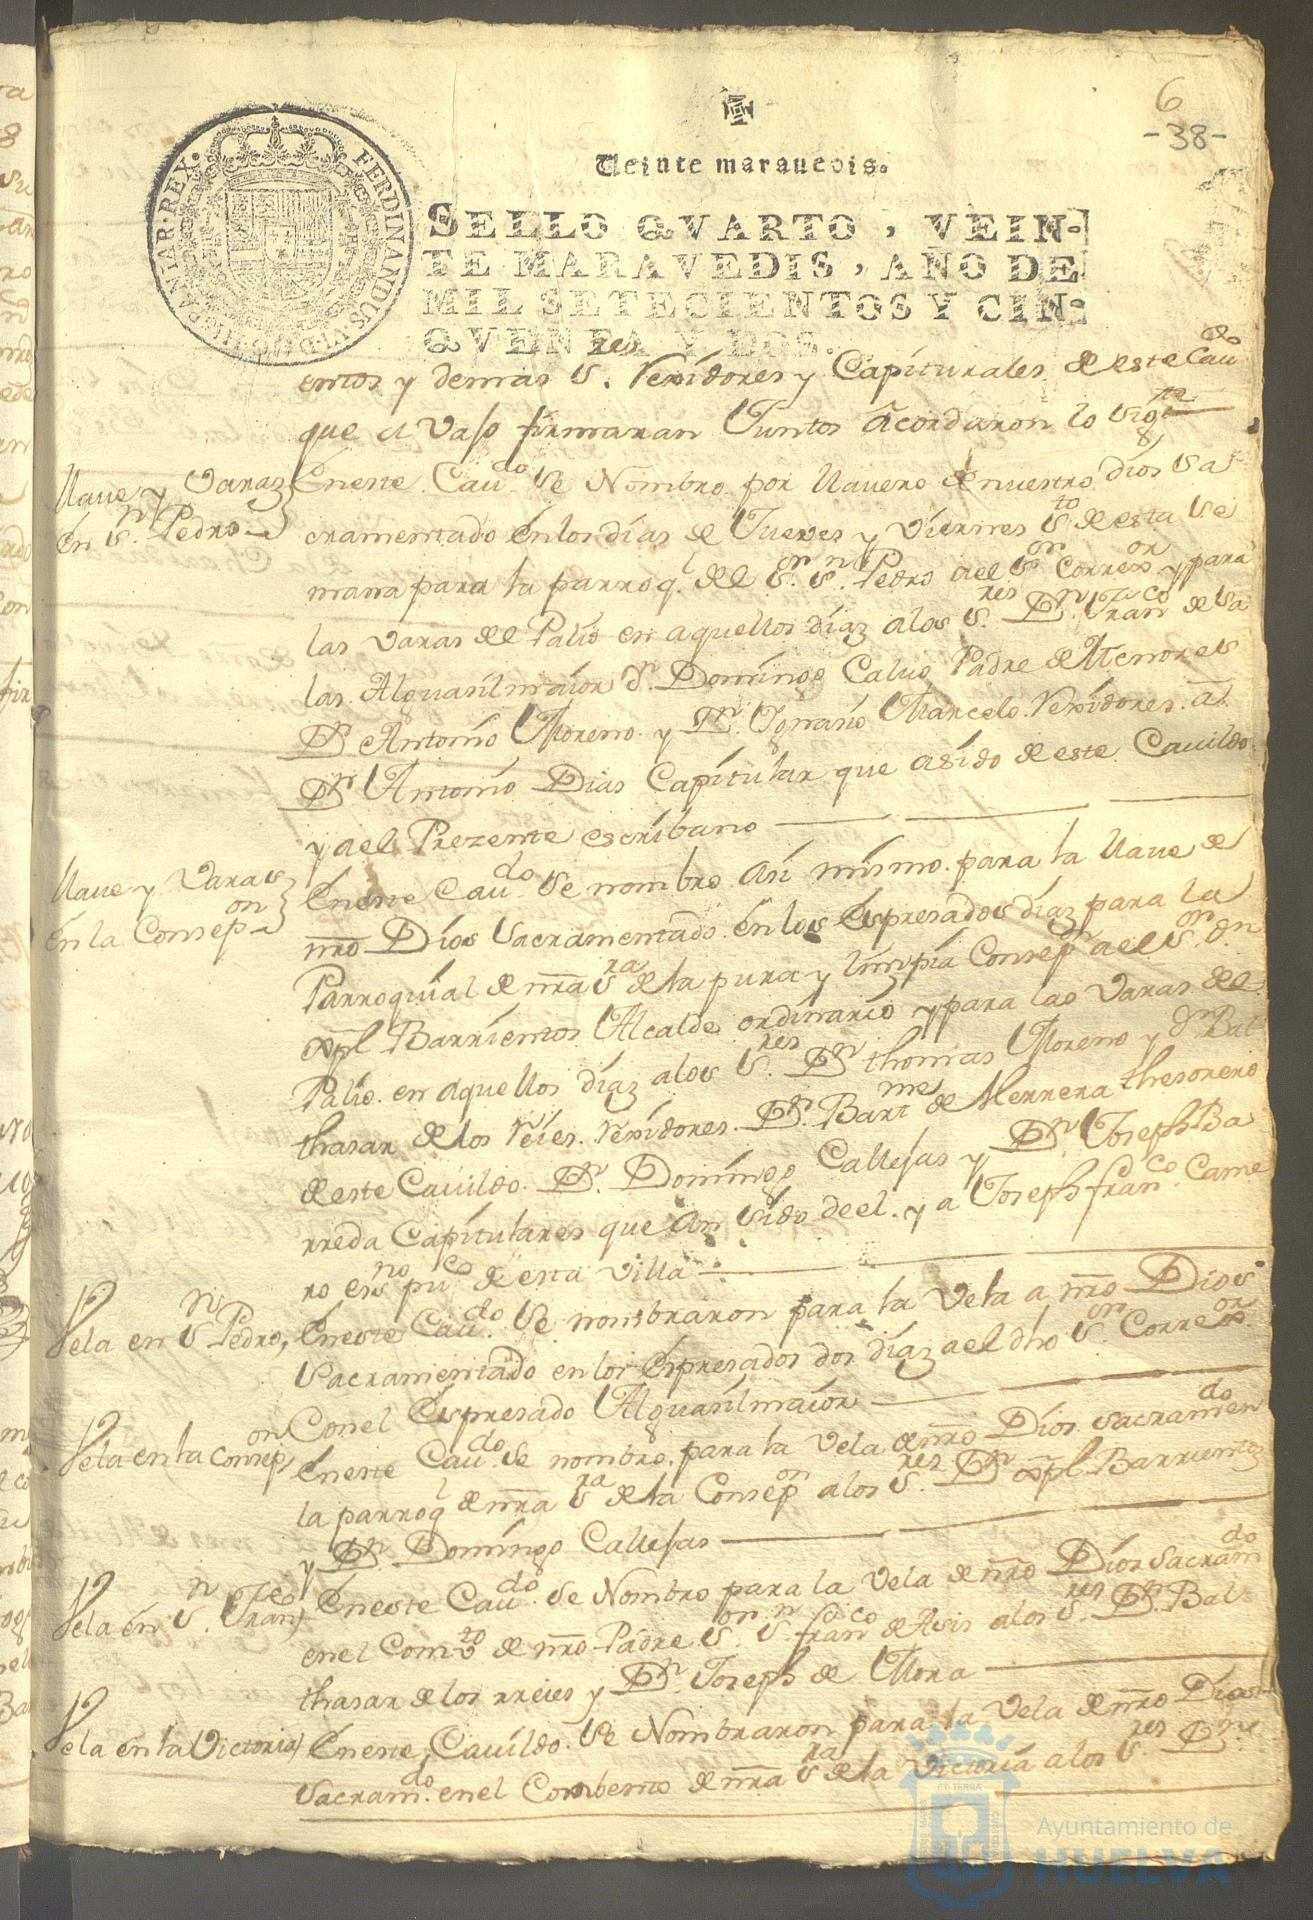 6
-38-
Veinte maravedis.
SELLO QVARTO, VEIN-
TE MARAVEDIS, AÑO DE
MIL SETECIENTOS Y CIN-
QVENTA Y DOS.
FERDINANDUS·VI·D·G·HISPANIAR·REX·
y demas S.res Rexidores y Capitulares de este Cavdo
que a vaso firmaran Juntos Acordaron lo sigte
Llave y Varas
en Sn. Pedro
En este Cavdo. se Nombro por llavero de nuestro Dios Sa
cramentado en los dias de Jueves y Viernes Sto de esta Se
mana para la parroql. de el Sor. Sn. Pedro a el Sor Correxor y para
las varas de el Palio en aquellos diaz a los S.res Dn. Franco de Sa
las Alguasilmaior Dn. Domingo Calvo Padre de Menores
Dn Antonio Moreno y Dn. Ignazio Marcelo Rexidores. a
Dn Antonio Dias Capitular que asido de este Cavildo
y a el Prezente escribano
Llave y Varas
en la Consepon
En este Cavdo se nombro Asi mismo para la llave de
nro Dios Sacramentado en los Espresados diaz para la
Parroquial de nra Sra de la pura y limpia Consepon a el Sor. Dn
Xpl Barrientos Alcalde ordinario y para las Varas de el
Palio en aquellos diaz a los S.res Dn thomas Moreno y Dn Bal
thasar de los Reies Rexidores. Dn. Bartme de Herrera thesorero
de este Cavildo Dn. Domingo Callejas y Dn Joseph Ba
rreda Capitulares que an sido de el. y a Joseph franco. Came
ro esno puco de esta villa
Vela en Sn Pedro,
En este Cavdo. Se nombraron para la Vela a nro Dios
Sacramentado en los Espresados dos diaz a el dho Sor Correxor.
Con el Espresado Alguasilmaior
Vela en la Consepon
En este Cavdo se nombro para la Vela de nro Dios Sacramendo en
la parroql de nra Sra de la Consepon a los S.res Dn Xpl Barrientos
y Dn. Domingo Callejas
Vela en Sn. Franco
En este Cavdo. se Nombro para la Vela de nro Dios Sacramdo
en el Comto de nro Padre Sor Sn franco de Asis a los S.res Dn. Bal
thasar de los rreies y Dn Joseph de Mora
Vela en la Victoria
En este Cavildo. Se Nombraron para la vela de nro Dios
Sacramdo. en el Combento de nra Sra de la Victoria a los S.res Dn
Ayuntamiento de
HUELVA